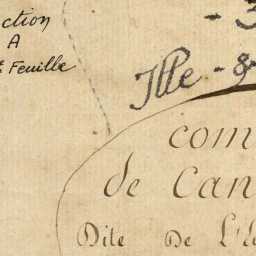 ction
A
Feuille
Ille - &
com
de Can
Dite De L'